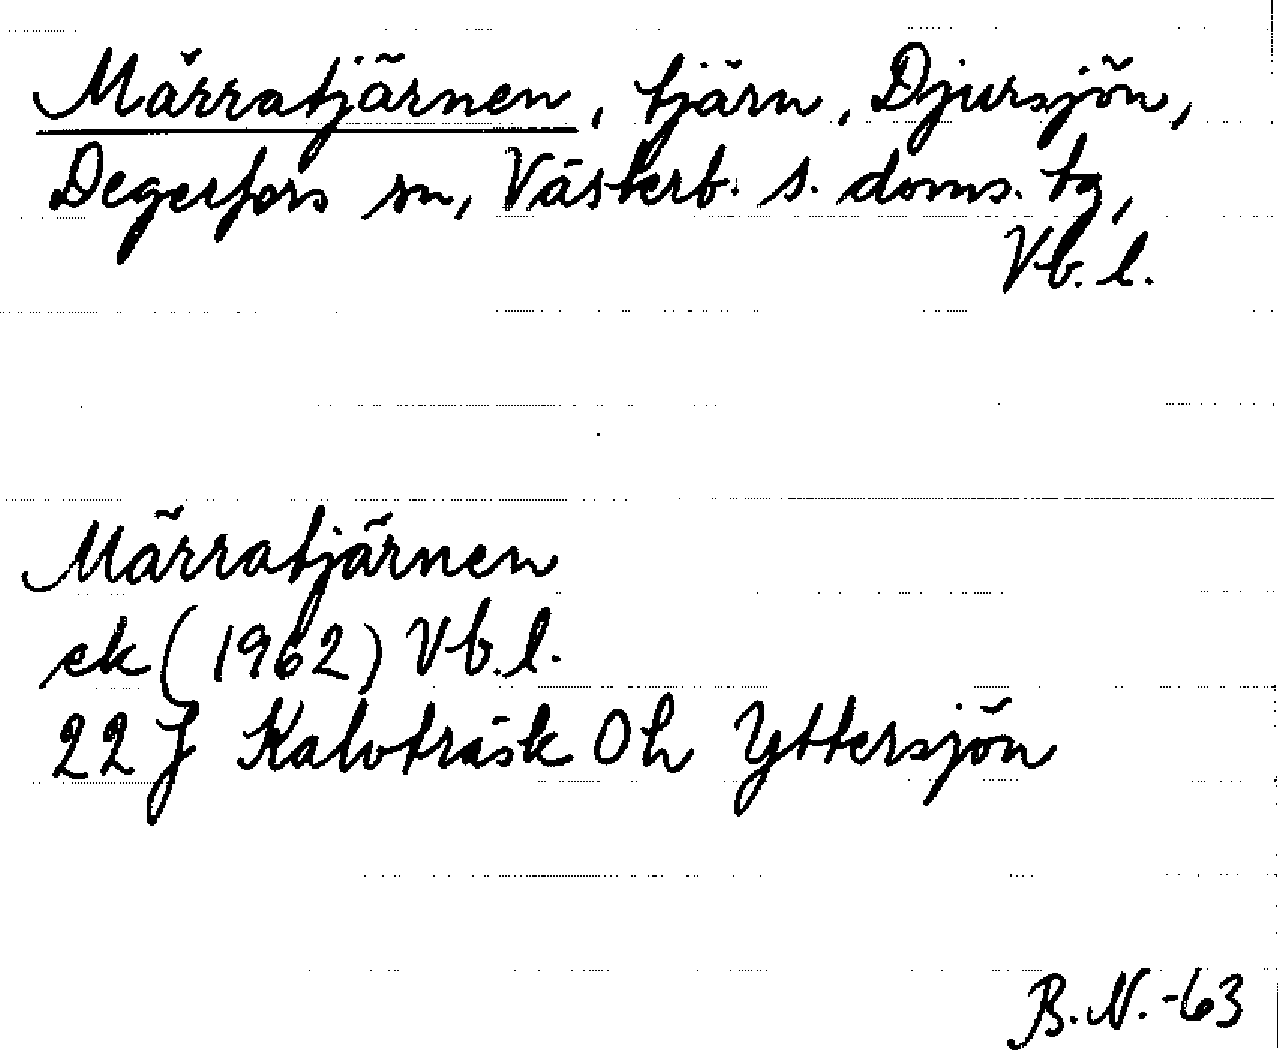 Märratjärnen, tjärn, Djursjön,
Degerfors sn, Västerb. s. doms. tg,
Vb. l.
Märratjärnen
ek (1962) Vb. l.
22 J Kalvträsk 0h Yttersjön
B.N.-63